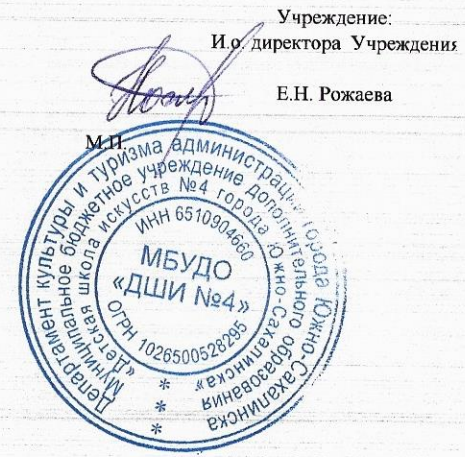 Учреждение:
И.о. директора Учреждения
Е.Н. Рожаева
М.П.
Департамент культуры и туризма администрации города Южно-Сахалинска
Муниципальное бюджетное учреждение дополнительного образования
«Детская школа искусств №4 города Южно-Сахалинска»
ИНН 6510904660
МБУДО
«ДШИ №4»
ОГРН 1026500528295
* * *